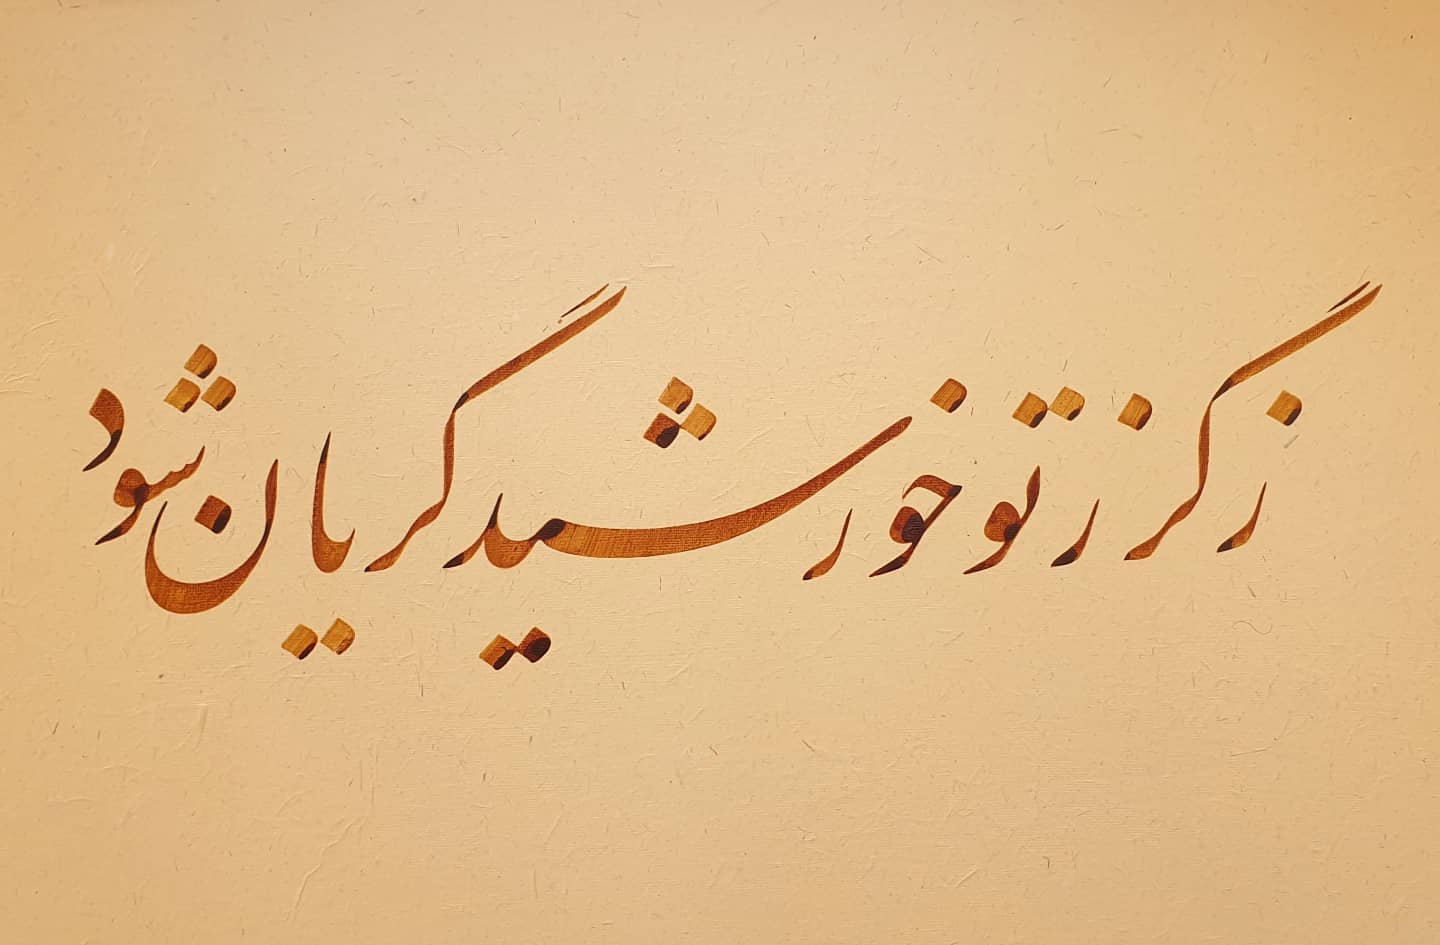 ز گرز تو خورشید گریان شود